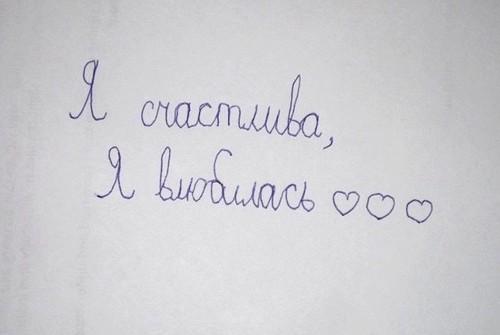 Я счастлива,
Я влюбилась ♡♡♡